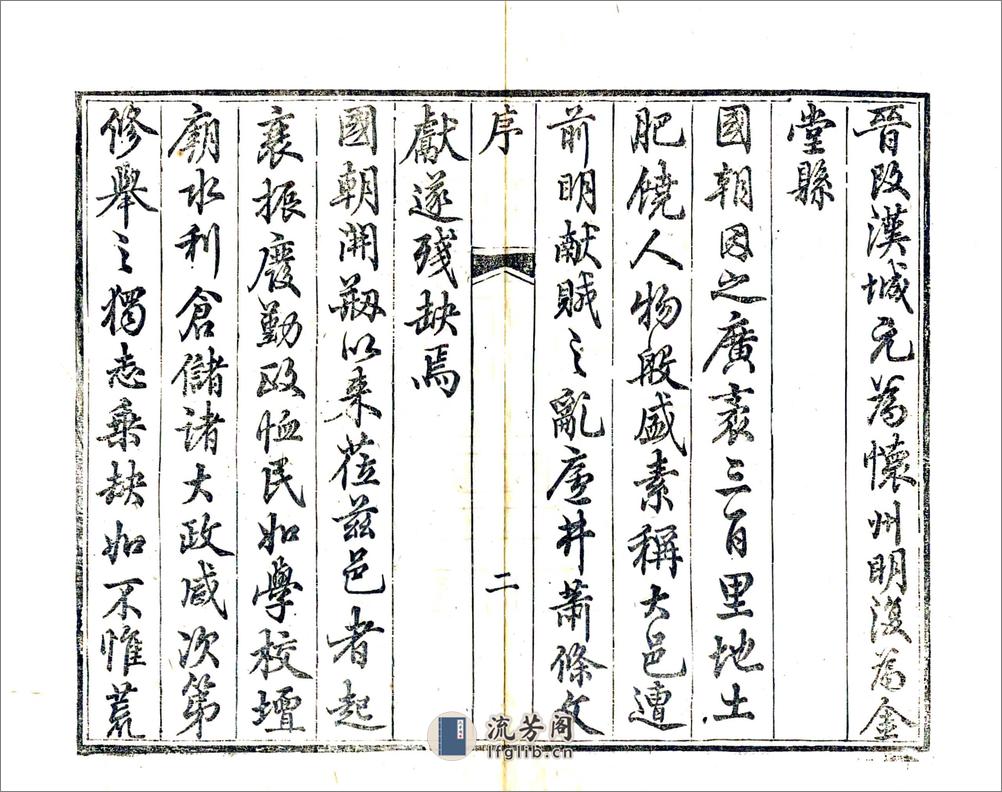 晉改漢城元為懷州明復為金
堂縣
國朝因之廣袤三百里地土
肥饒人物殷盛素稱大邑遭
前明献賊之亂廬井蕭條文
序
二
獻遂殘缺焉
國朝開刱以来莅茲邑者起
衰振廢勤政恤民如學校壇
廟水利倉儲諸大政咸次第
修舉之獨志乗缺如不惟荒
流芳阁
lfglib.cn